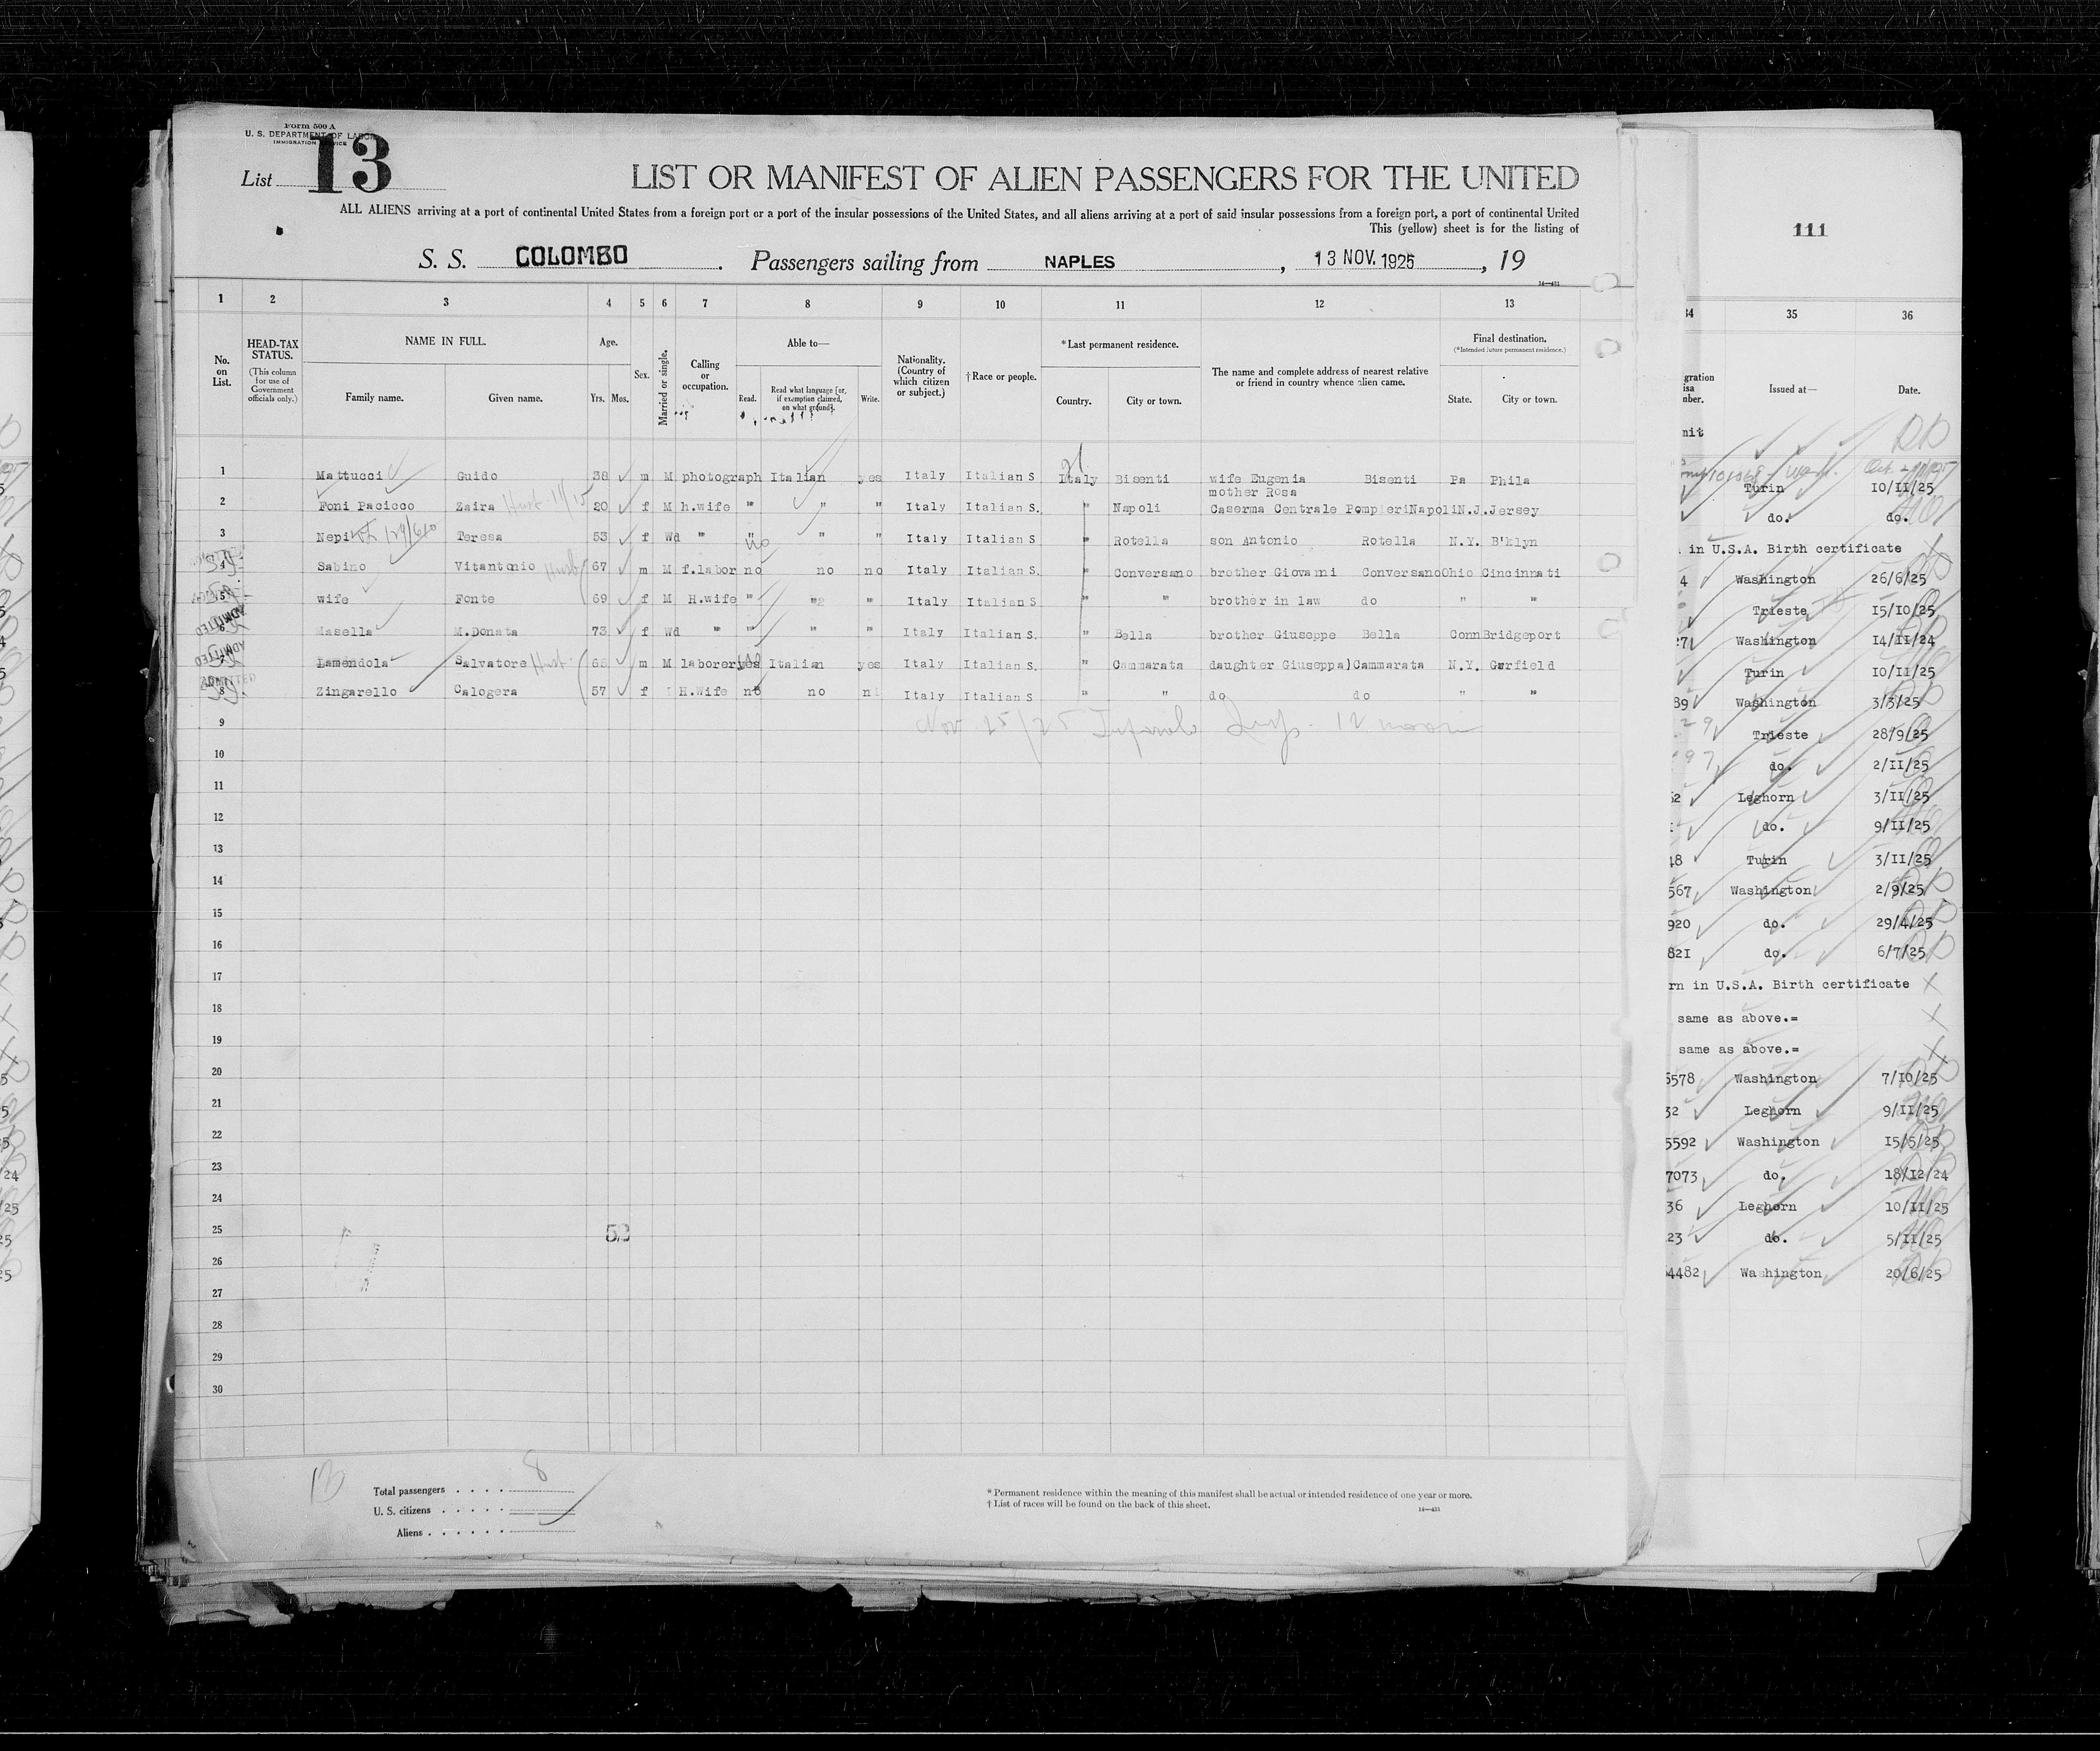 Form 500 A
U. S. DEPARTMENT OF LABOR
IMMIGRATION SERVICE
List 13
LIST OR MANIFEST OF ALIEN PASSENGERS FOR THE UNITED
ALL ALIENS arriving at a port of continental United States from a foreign port or a port of the insular possessions of the United States, and all aliens arriving at a port of said insular possessions from a foreign port, a port of continental United
This (yellow) sheet is for the listing of
S. S. COLOMBO. Passengers sailing from NAPLES, 13 NOV. 1925, 19
14—431
1 2 3 4 5 6 7 8 9 10 11 12 13
No. on List.
HEAD-TAX STATUS.
(This column for use of Government officials only.)
NAME IN FULL.
Family name. Given name.
Age.
Yrs. Mos.
Sex.
Married or single.
Calling or occupation.
Able to—
Read. Read what language [or, if exemption claimed, on what ground]. Write.
Nationality. (Country of which citizen or subject.)
†Race or people.
*Last permanent residence.
Country. City or town.
The name and complete address of nearest relative or friend in country whence alien came.
Final destination.
(*Intended future permanent residence.)
State. City or town.
1 Mattucci Guido 38 m M photograph Italian yes Italy Italian S Italy Bisenti wife Eugenia Bisenti Pa Phila
mother Rosa
2 Foni Pacicco Zaira 20 f M h.wife " " " Italy Italian S. " Napoli Caserma Centrale PompieriNapoli N.J. Jersey
3 Nepi Teresa 53 f Wd " " " " Italy Italian S " Rotella son Antonio Rotella N.Y. B'klyn
no
4 Sabino Vitantonio 67 m M f.labor no no no Italy Italian S. " Conversano brother Giovanni Conversano Ohio Cincinnati
5 wife Fonte 69 f M H.wife " " " Italy Italian S " " brother in law do " "
6 Masella M.Donata 73 f Wd " " " " Italy Italian S. " Bella brother Giuseppe Bella Conn Bridgeport
ADMITTED
7 Lamendola Salvatore 68 m M laborer yes Italian yes Italy Italian S. " Cammarata daughter Giuseppa) Cammarata N.Y. Garfield
ADMITTED
8 Zingarello Calogera 57 f H.Wife no no Italy Italian S " " do do " "
ADMITTED
9 Nov 25/25 12 noon
10
11
12
13
14
15
16
17
18
19
20
21
22
23
24
25
26
27
28
29
30
Total passengers 8
U. S. citizens
Aliens
* Permanent residence within the meaning of this manifest shall be actual or intended residence of one year or more.
† List of races will be found on the back of this sheet.
14—431
111
34 35 36
Issued at— Date.
Turin 10/11/25
do. do.
in U.S.A. Birth certificate
4 Washington 26/6/25
Trieste 15/10/25
271 Washington 14/11/24
Turin 10/11/25
89 Washington 3/3/25
29 Trieste 28/9/25
97 do. 2/11/25
52 Leghorn 3/11/25
do. 9/11/25
48 Turin 3/11/25
567 Washington 2/9/25
920 do. 29/4/25
821 do. 6/7/25
rn in U.S.A. Birth certificate
same as above.=
same as above.=
5578 Washington 7/10/25
32 Leghorn 9/11/25
5592 Washington 15/5/25
7073 do. 18/12/24
36 Leghorn 10/11/25
23 do. 5/11/25
4482 Washington 20/6/25